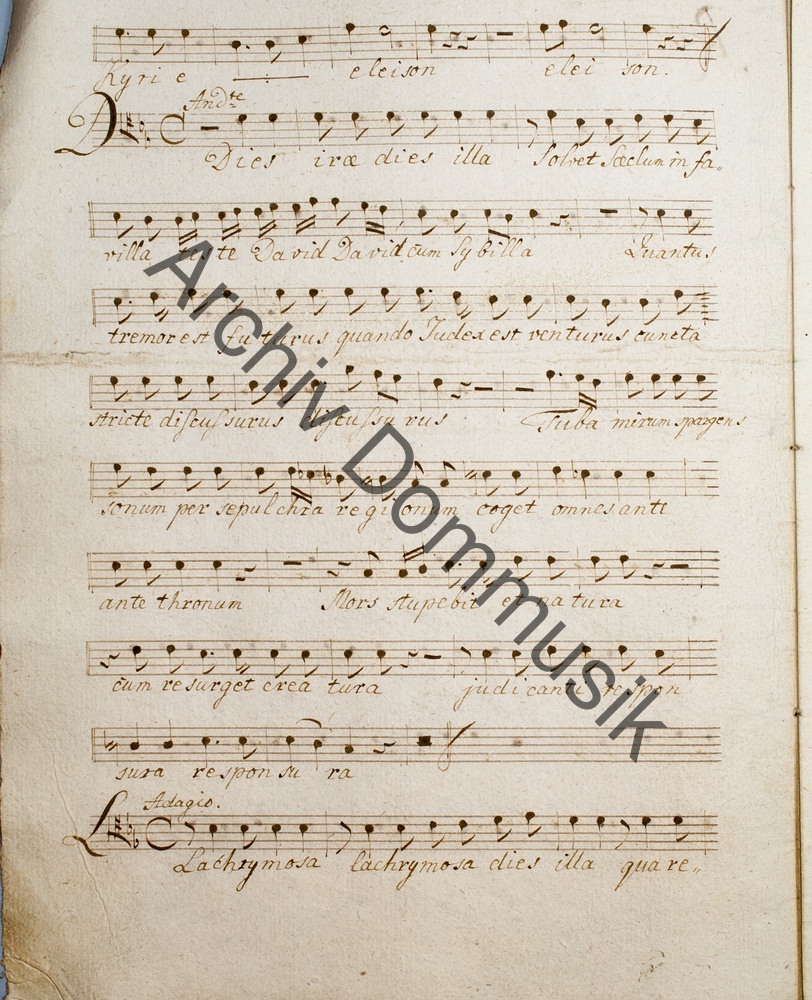 Kyri e eleison elei son.
Andte
Dies iræ dies illa Solvet Sæclum in fa„
villa teste David David cum Sybilla Quantus
tremor est futurus quando Judex est venturus cuncta
stricte discussurus discussu rus Tuba mirum spargens
sonum per sepulchra regi onum coget omnes ante
ante thronum Mors stupebit et natura
cum resurget crea tura judicanti respon
sura respon su ra
Adagio.
Lachrymosa lachrymosa dies illa qua re„
Archiv Dommusik